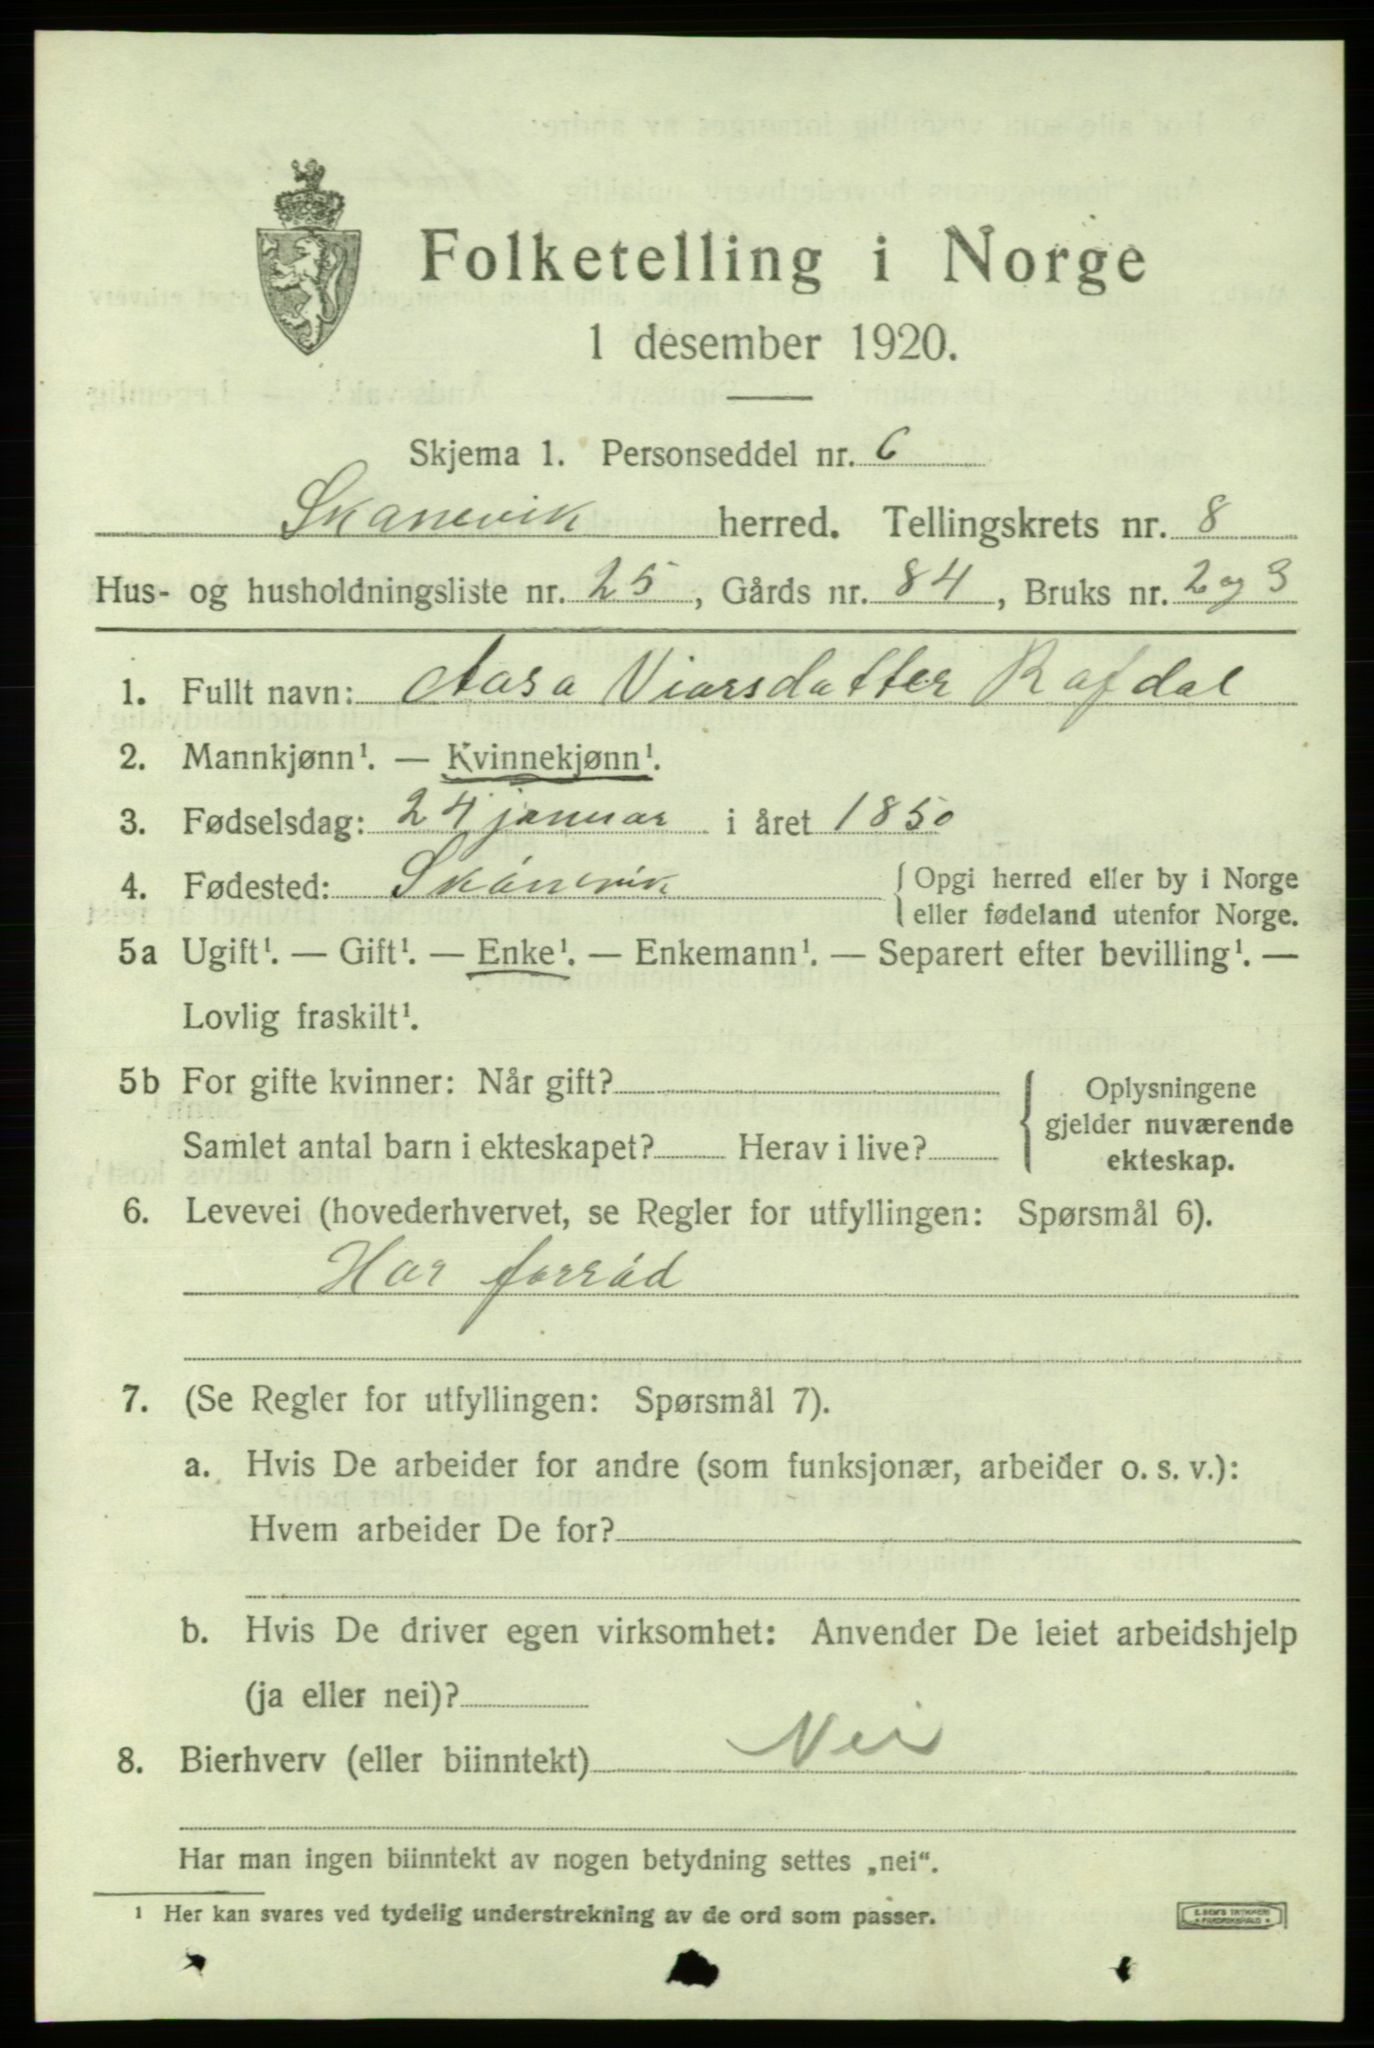 Folketelling i Norge
1 desember 1920.
Skjema 1. Personseddel nr. 6
Skanevik herred. Tellingskrets nr. 8
Hus- og husholdningsliste nr. 25, Gårds nr. 84, Bruks nr. 2 og 3
1. Fullt navn: Aasa Viarsdatter Rafdal
2. Mannkjønn¹. — Kvinnekjønn¹.
3. Fødselsdag: 24 januar i året 1850
4. Fødested: Skånevik {Opgi herred eller by i Norge
eller fødeland utenfor Norge.
5a Ugift¹. — Gift¹. — Enke¹. — Enkemann¹. — Separert efter bevilling¹. —
Lovlig fraskilt¹.
5b For gifte kvinner: Når gift?
Samlet antal barn i ekteskapet? Herav i live?
{Oplysningene
gjelder nuværende
ekteskap.
6. Levevei (hovederhvervet, se Regler for utfyllingen: Spørsmål 6).
Har forråd
7. (Se Regler for utfyllingen: Spørsmål 7).
a. Hvis De arbeider for andre (som funksjonær, arbeider o. s. v.):
Hvem arbeider De for?
b. Hvis De driver egen virksomhet: Anvender De leiet arbeidshjelp
(ja eller nei)?
8. Bierhverv (eller biinntekt) Nei
Har man ingen biinntekt av nogen betydning settes „nei“.
¹ Her kan svares ved tydelig understrekning av de ord som passer.